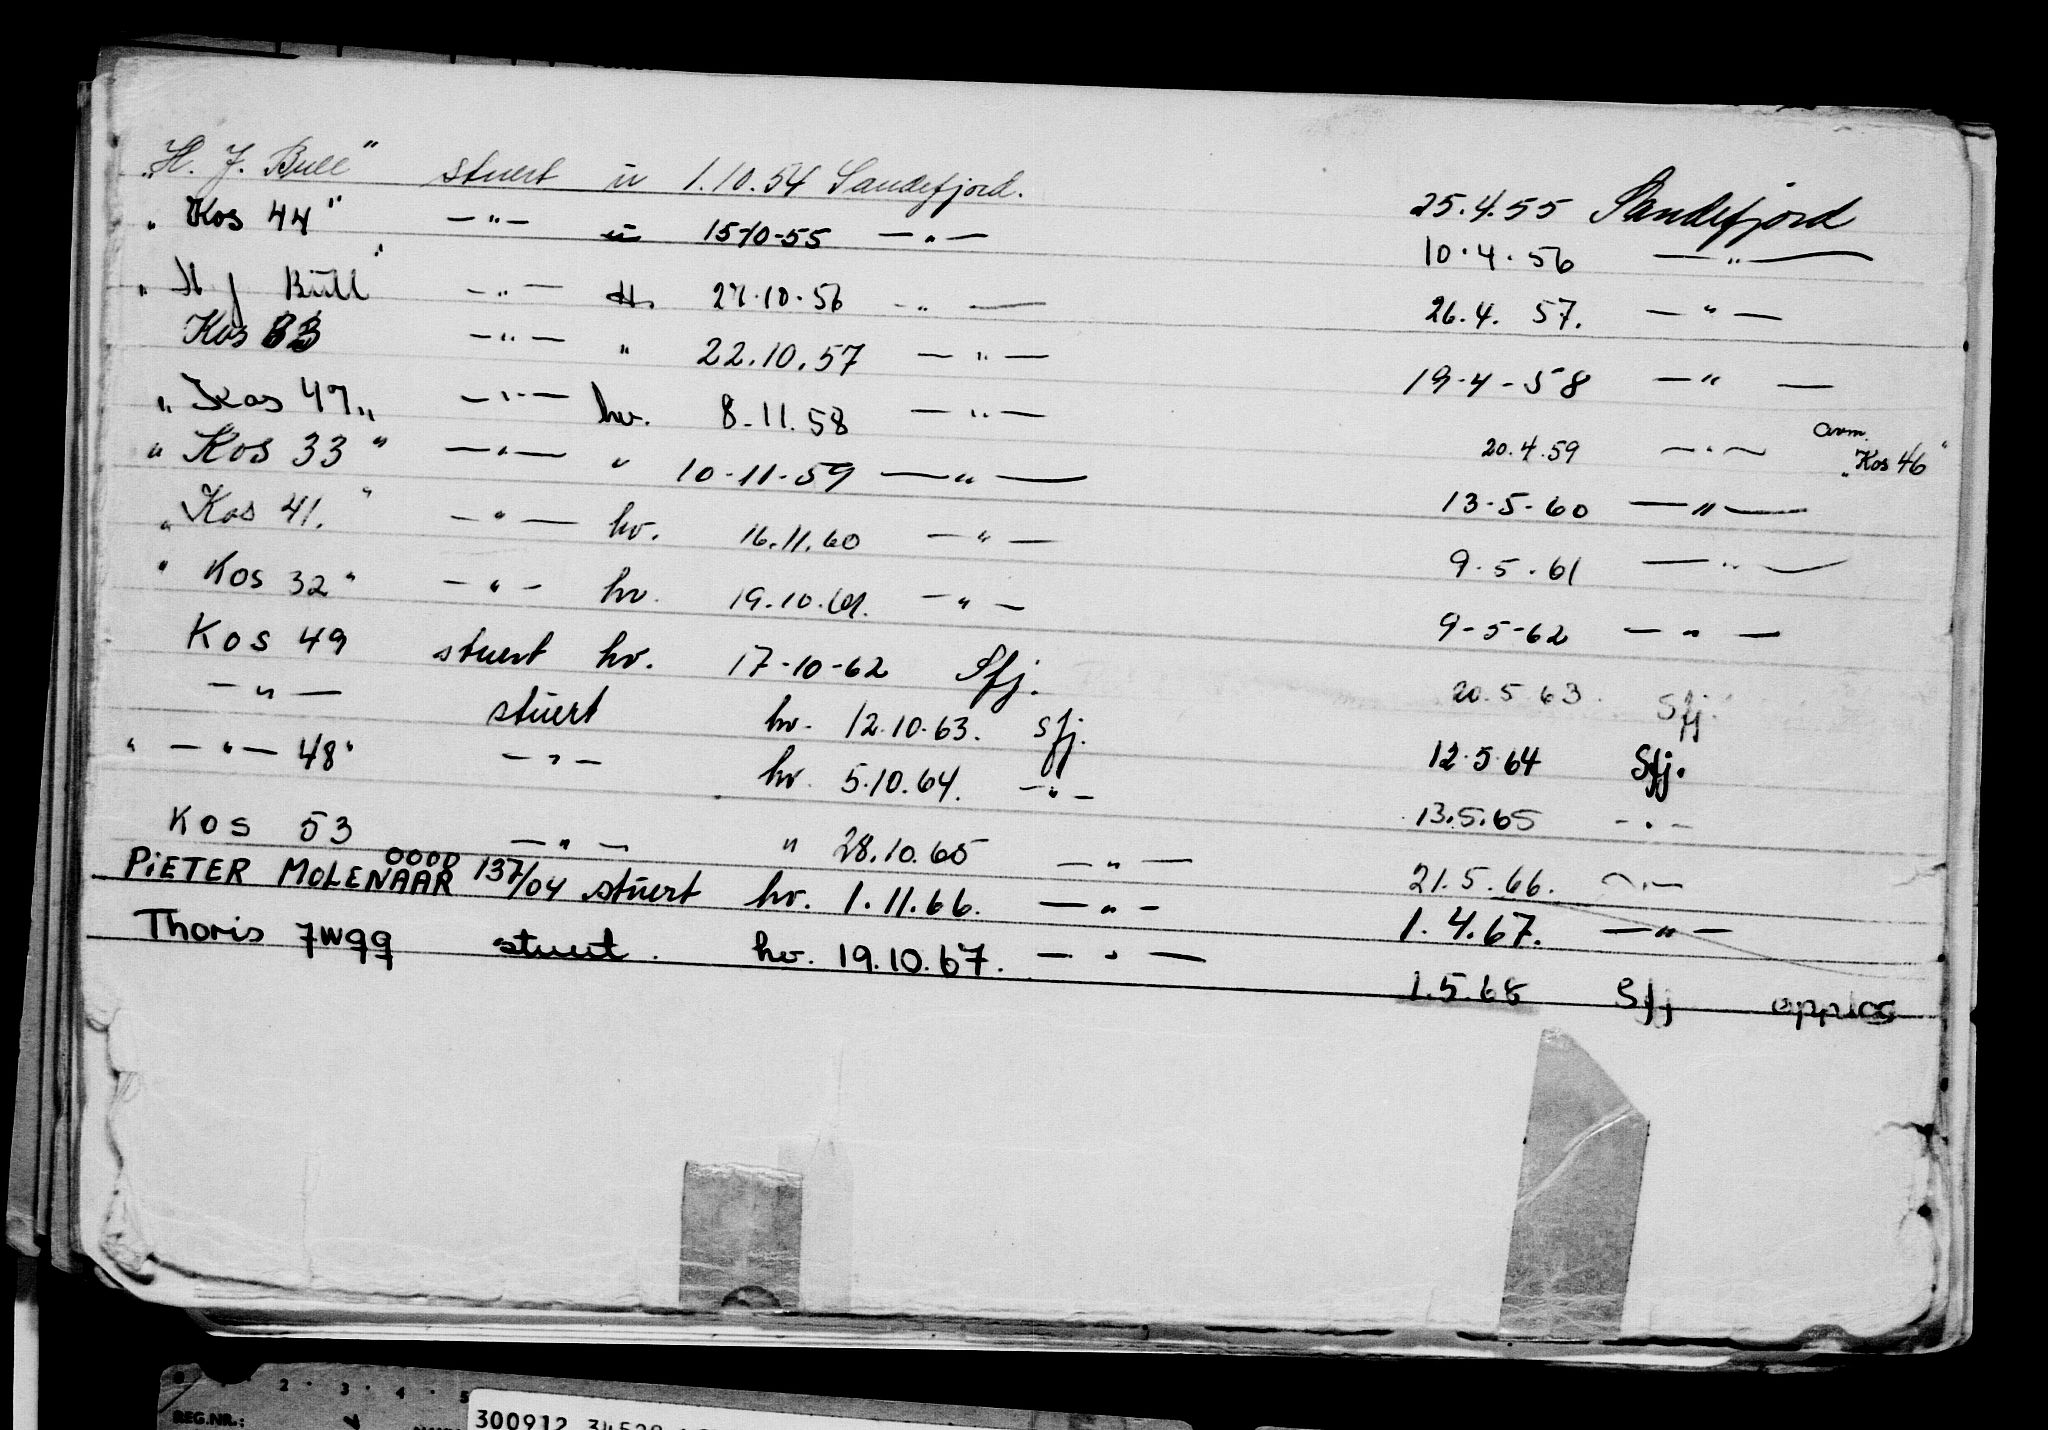 „H. J. Bull" stuert u 1.10.54 Sandefjord. 25.4.55 Sandefjord
„ Kos 44" —"— u 15-10-55 —"— 10.4.56 —"—
„ H J Bull" —"— H. 27.10.56 —"— 26.4. 57. —"—
Kos —"— " 22.10.57 —"— 19-4-58 —"—
„ Kos 47„ —"— hv. 8-11.58 —"— 20.4.59 —"— avm. „Kos 46"
" Kos 33 " —"— " 10-11-59 —"— 13-5-60 —"—
„ Kos 41. " —"— hv. 16.11.60 —"— 9.5.61 —"—
" Kos 32 " —"— hv. 19.10.61. —"— 9-5-62 —"—
Kos 49 stuert hv. 17-10-62 Sfj. 20.5 63. Sfj.
—"— stuert hv. 12.10.63. Sfj. 12.5.64 Sfj.
" —"— 48" —"— hv. 5.10.64. —"— 13.5.65 —"—
Kos 53 —"— " 28.10.65 —"— 21.5.66. —"—
PiETER MOLENAAR 0000 137/04 stuert hv. 1.11.66. —"— 1.4.67. —"—
Thoris 7W99 stuert. hv. 19.10.67. —"— 1.5.68 Sfj
2 3 4 5
REG.NR.:
300912